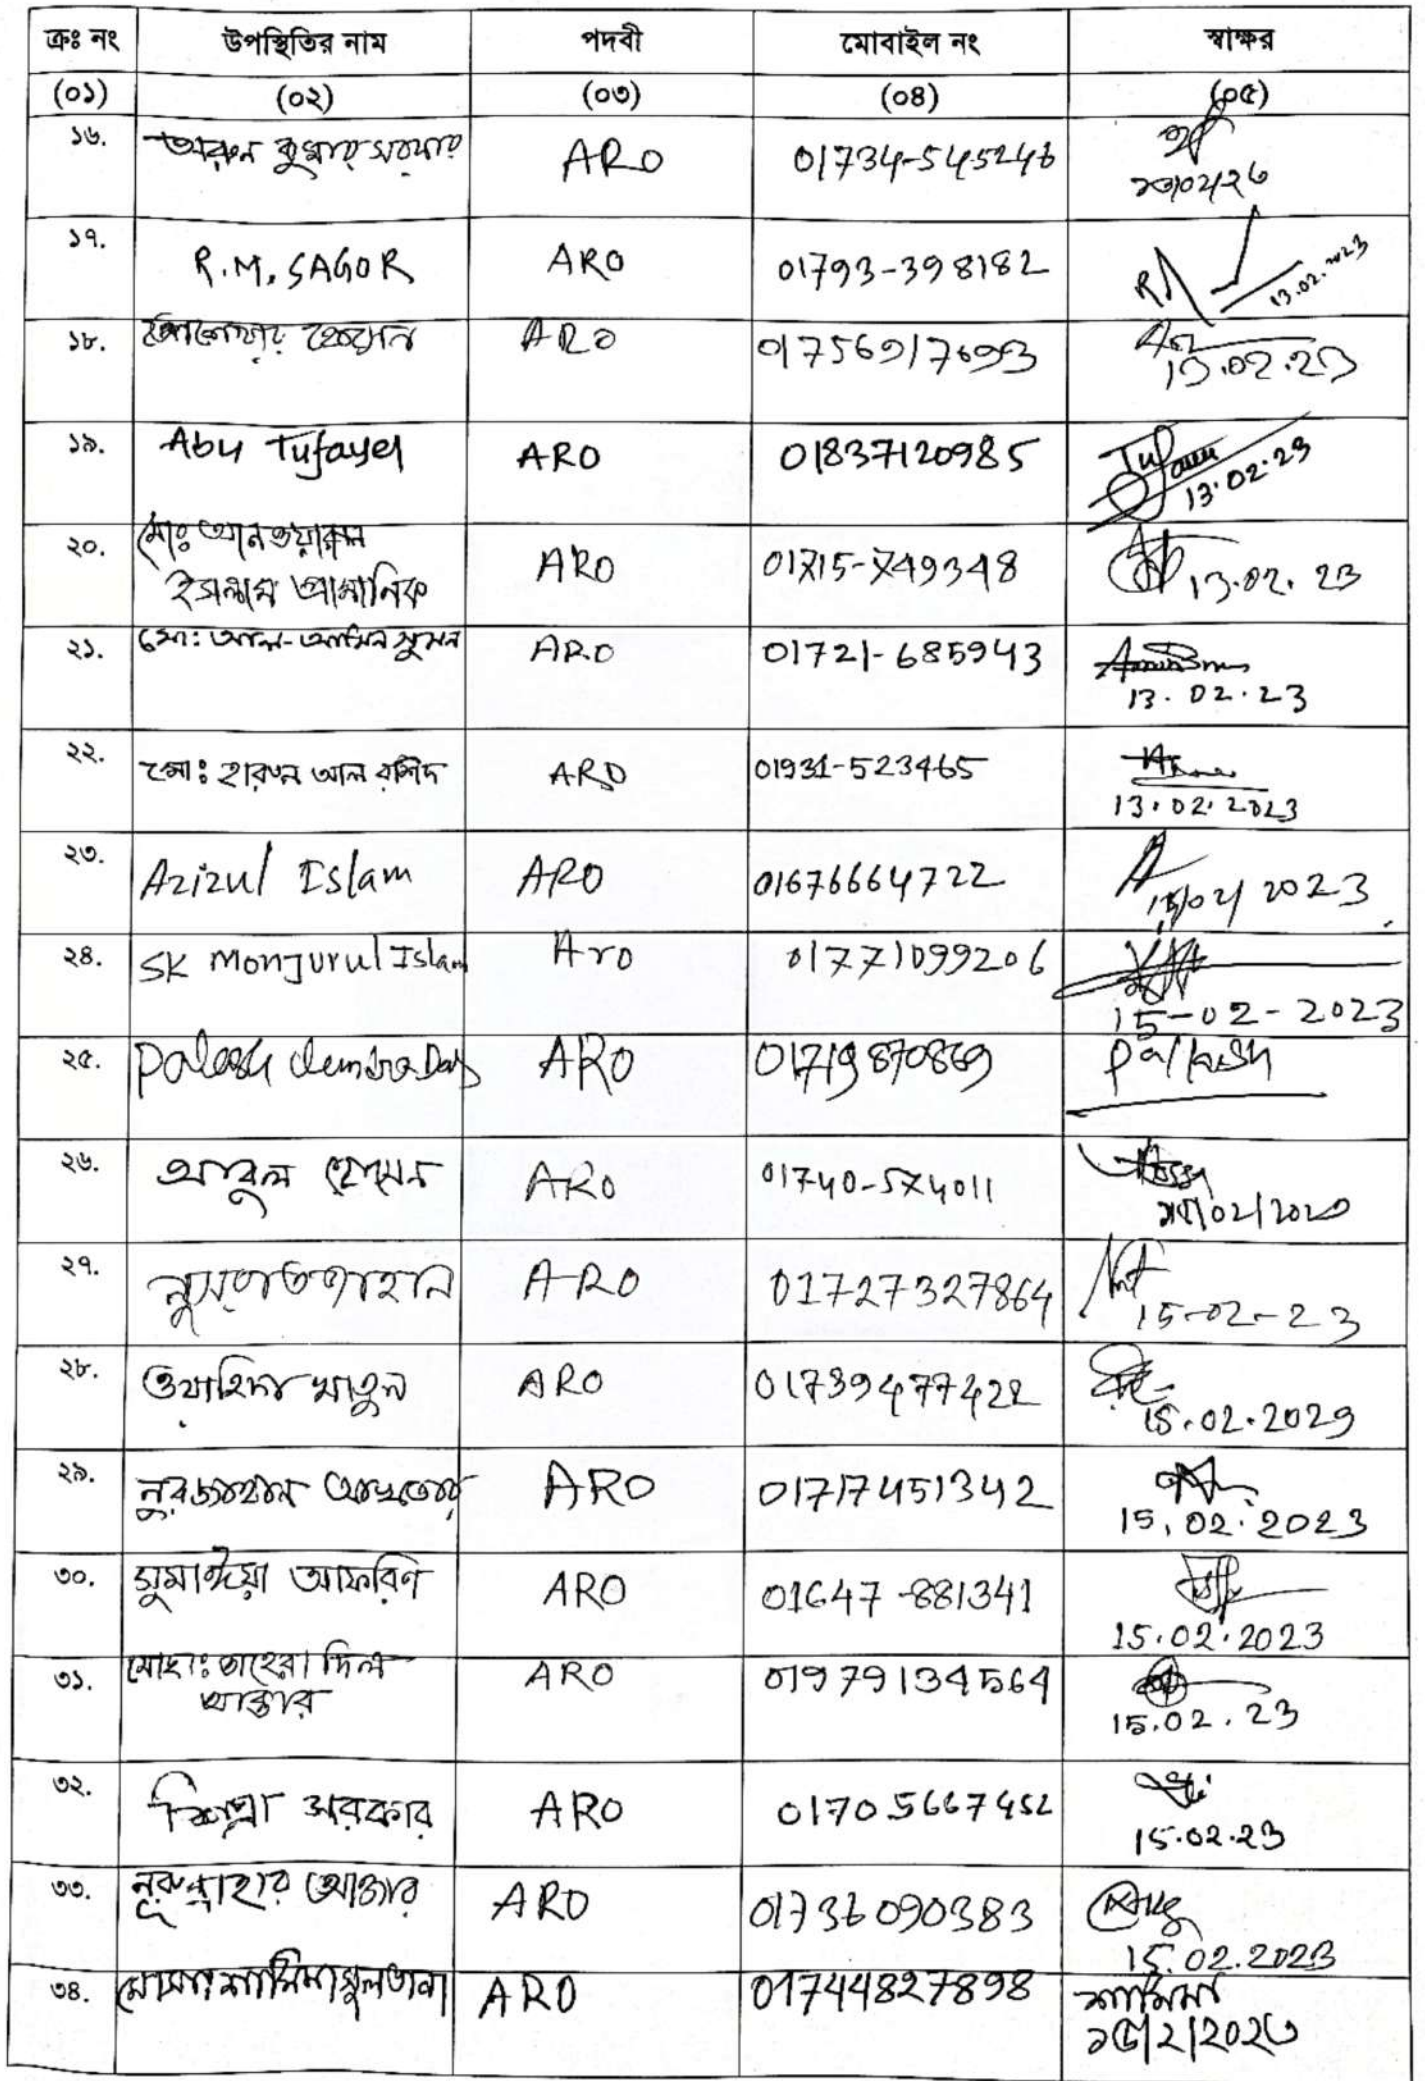 ক্রঃ নং উপস্থিতির নাম পদবী মোবাইল নং স্বাক্ষর
(০১) (০২) (০৩) (০৪) (০৫)
১৬. অরুন কুমার সরকার ARO 01734-545246
১৭. R.M. SAGOR ARO 01793-398182 13.02.2023
১৮. ARO 01756917693 13.02.23
১৯. Abu Tufayel ARO 01837120985 13.02.23
২০. মোঃ আনওয়ারুল
ইসলাম প্রামানিক ARO 01715-749348 13.02.23
২১. মো: আল-আমিন সুমন ARO 01721-685943
13.02.23
২২. মো: হারুন আল রশিদ ARO 01931-523465
13.02.2023
২৩. Azizul Islam ARO 01676664722 15/02/2023
২৪. SK Monjurul Islam Aro 01771099206
15-02-2023
২৫. Palash Chandra Das ARO 01719870869
২৬. আবুল হোসেন ARO 01740-574011
১৫/02/2023
২৭. নুসরাত জাহান ARO 01727327864 15-02-23
২৮. ওয়াহিদা খাতুন ARO 01739477422
15.02.2023
২৯. নুরজাহান আখতার ARO 01717451342
15.02.2023
৩০. সুমাঈয়া আফরিন ARO 01647-881341
15.02.2023
৩১. মোছা: তাহেরা দিল
আক্তার ARO 01979134564 15.02.23
৩২. শিপ্রা সরকার ARO 01705667452
15.02.23
৩৩. নূরুন্নাহার আক্তার ARO 01736090383
15.02.2023
৩৪. মোসাঃ শামিমা সুলতানা ARO 01744827898 শামিমা
১৫/২/২০২৩